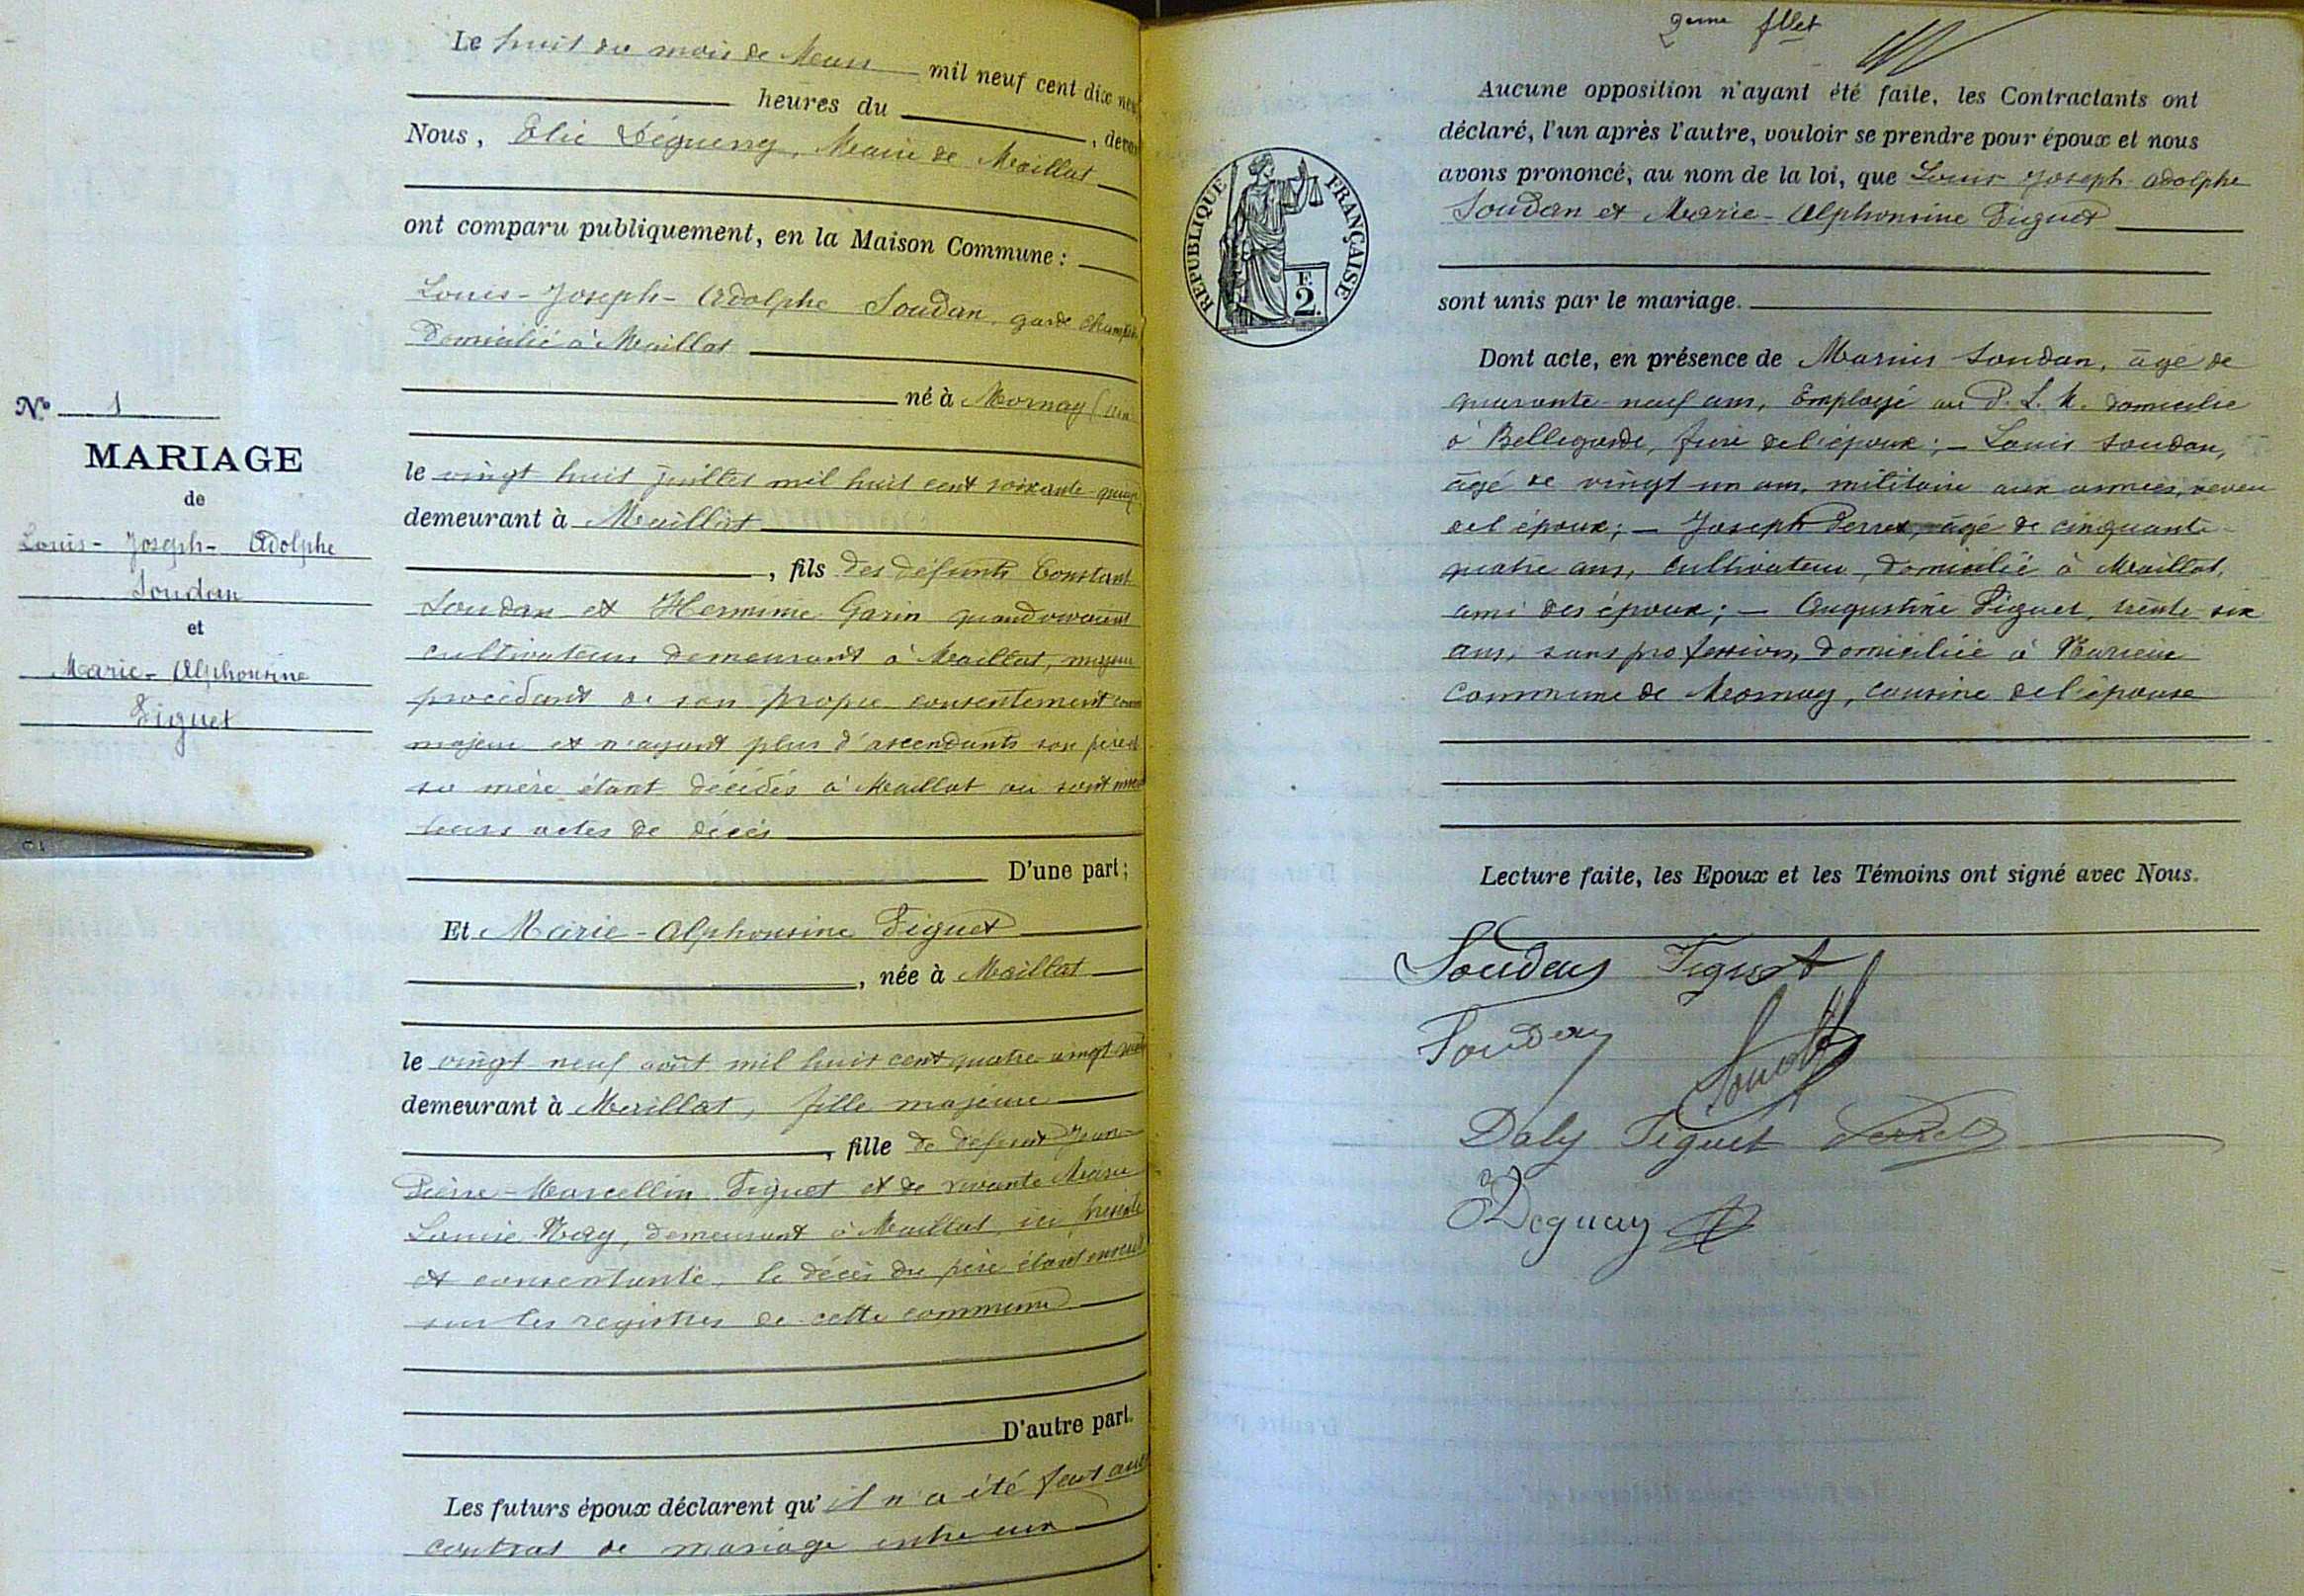 Le huit du mois de Mars mil neuf cent dix neu
heures du , devan
Nous, Elie Déguerry, Maire de Maillat
ont comparu publiquement, en la Maison Commune :
Louis-Joseph-Adolphe Soudan, garde champêtre
domicilié à Maillat
né à Mornay (Ain
le vingt huit juillet mil huit cent soixante-quinz
demeurant à Maillat
, fils des défunts Constant
Soudan et Hermine Garin quand vivaient
cultivateurs demeurant à Maillat, majeur
procédant de son propre consentement comme
majeur et n'ayant plus d'ascendants son père et
sa mère étant décédés à Maillat où sont
leurs actes de décès
D'une part ;
Nº 1
MARIAGE
de
Louis-Joseph-Adolphe
Soudan
et
Marie-Alphonsine
Figuet
Et Marie-Alphonsine Figuet
, née à Maillat
le vingt neuf août mil huit cent quatre-vingt
demeurant à Maillat, fille majeure
, fille de défunt Jean-
Pierre-Marcellin Figuet et de vivante Marie
Louise Nay, demeurant à Maillat, ici présente
et consentante, le décès du père étant
sur les registres de cette commune
D'autre part.
Les futurs époux déclarent qu'il n'a été fait auc
contrat de mariage entre eux
2eme fllet
Aucune opposition n'ayant été faite, les Contractants ont
déclaré, l'un après l'autre, vouloir se prendre pour époux et nous
avons prononcé, au nom de la loi, que Louis Joseph Adolphe
Soudan et Marie-Alphonsine Figuet
sont unis par le mariage.
REPUBLIQUE FRANÇAISE
F.
2.
Dont acte, en présence de Marius Soudan, âgé de
quarante-neuf ans, Employé au P. L. M. domicilié
à Bellegarde, frère de l'époux ; – Louis Soudan,
âgé de vingt un ans, militaire aux armées, neveu
de l'époux ; – Joseph Perret, âgé de cinquante-
quatre ans, cultivateur, domicilié à Maillat,
ami des époux ; – Augustine Figuet, trente-six
ans, sans profession, domiciliée à
commune de Mornay, cousine de l'épouse
Lecture faite, les Epoux et les Témoins ont signé avec Nous.
Soudan Figuet
Soudan
Daly Figuet Perret